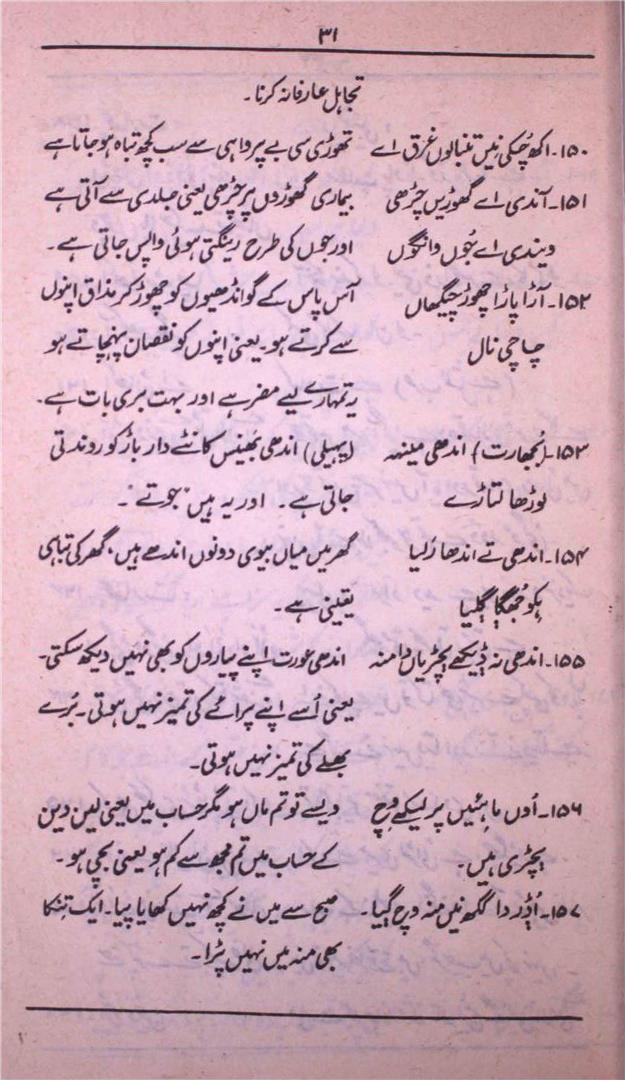 ۳۱
تجاہل عارفانہ کرنا۔
۱۵۰۔ اکھ چُکی نیں تنبالوں غرق اے تھوڑی سی بے پرواہی سے سب کچھ تباہ ہو جاتا ہے
۱۵۱۔ آندی اے گھوڑیں چڑھی بیماری گھوڑوں پر چڑھی یعنی جلدی سے آتی ہے
ویندی اے جُوں وانگوں اور جوں کی طرح رینگتی ہوئی واپس جاتی ہے۔
۱۵۲۔ آڑا پاڑا چھوڑ چِگھاں آس پاس کے گوانڈھیوں کو چھوڑ کر مذاق اپنوں
چاچی نال سے کرتے ہو۔ یعنی اپنوں کو نقصان پہنچاتے ہو
یہ تمہارے لیے مضر ہے اور بہت بری بات ہے۔
۱۵۳۔ (بُجھارت) اندھی مینہہ (پہیلی) اندھی بھینس کانٹے دار باڑ کو روندتی
لوڑھا لتاڑے جاتی ہے۔ اور یہ ہیں "جوتے"۔
۱۵۴۔ اندھی تے اندھا رُلیا گھر میں میاں بیوی دونوں اندھے ہیں، گھر کی تباہی
ہکو جُھگا گلیا یقینی ہے۔
۱۵۵۔ اندھی نہ ڈیکھے پچڑیاں دا منہ اندھی عورت اپنے پیاروں کو بھی نہیں دیکھ سکتی۔
یعنی اُسے اپنے پرائے کی تمیز نہیں ہوتی۔ بُرے
بھلے کی تمیز نہیں ہوتی۔
۱۵۶۔ اُوں ما ہئیں پر لیکھے وچ ویسے تو تم ماں ہو مگر حساب میں یعنی لین دین
پچڑی ہیں۔ کے حساب میں تم مجھ سے کم ہو یعنی بچی ہو۔
۱۵۷۔ اُڈر دا ککھ نیں منہ وچ گیا۔ صبح سے میں نے کچھ نہیں کھایا پیا۔ ایک تنکا
بھی منہ میں نہیں پڑا۔